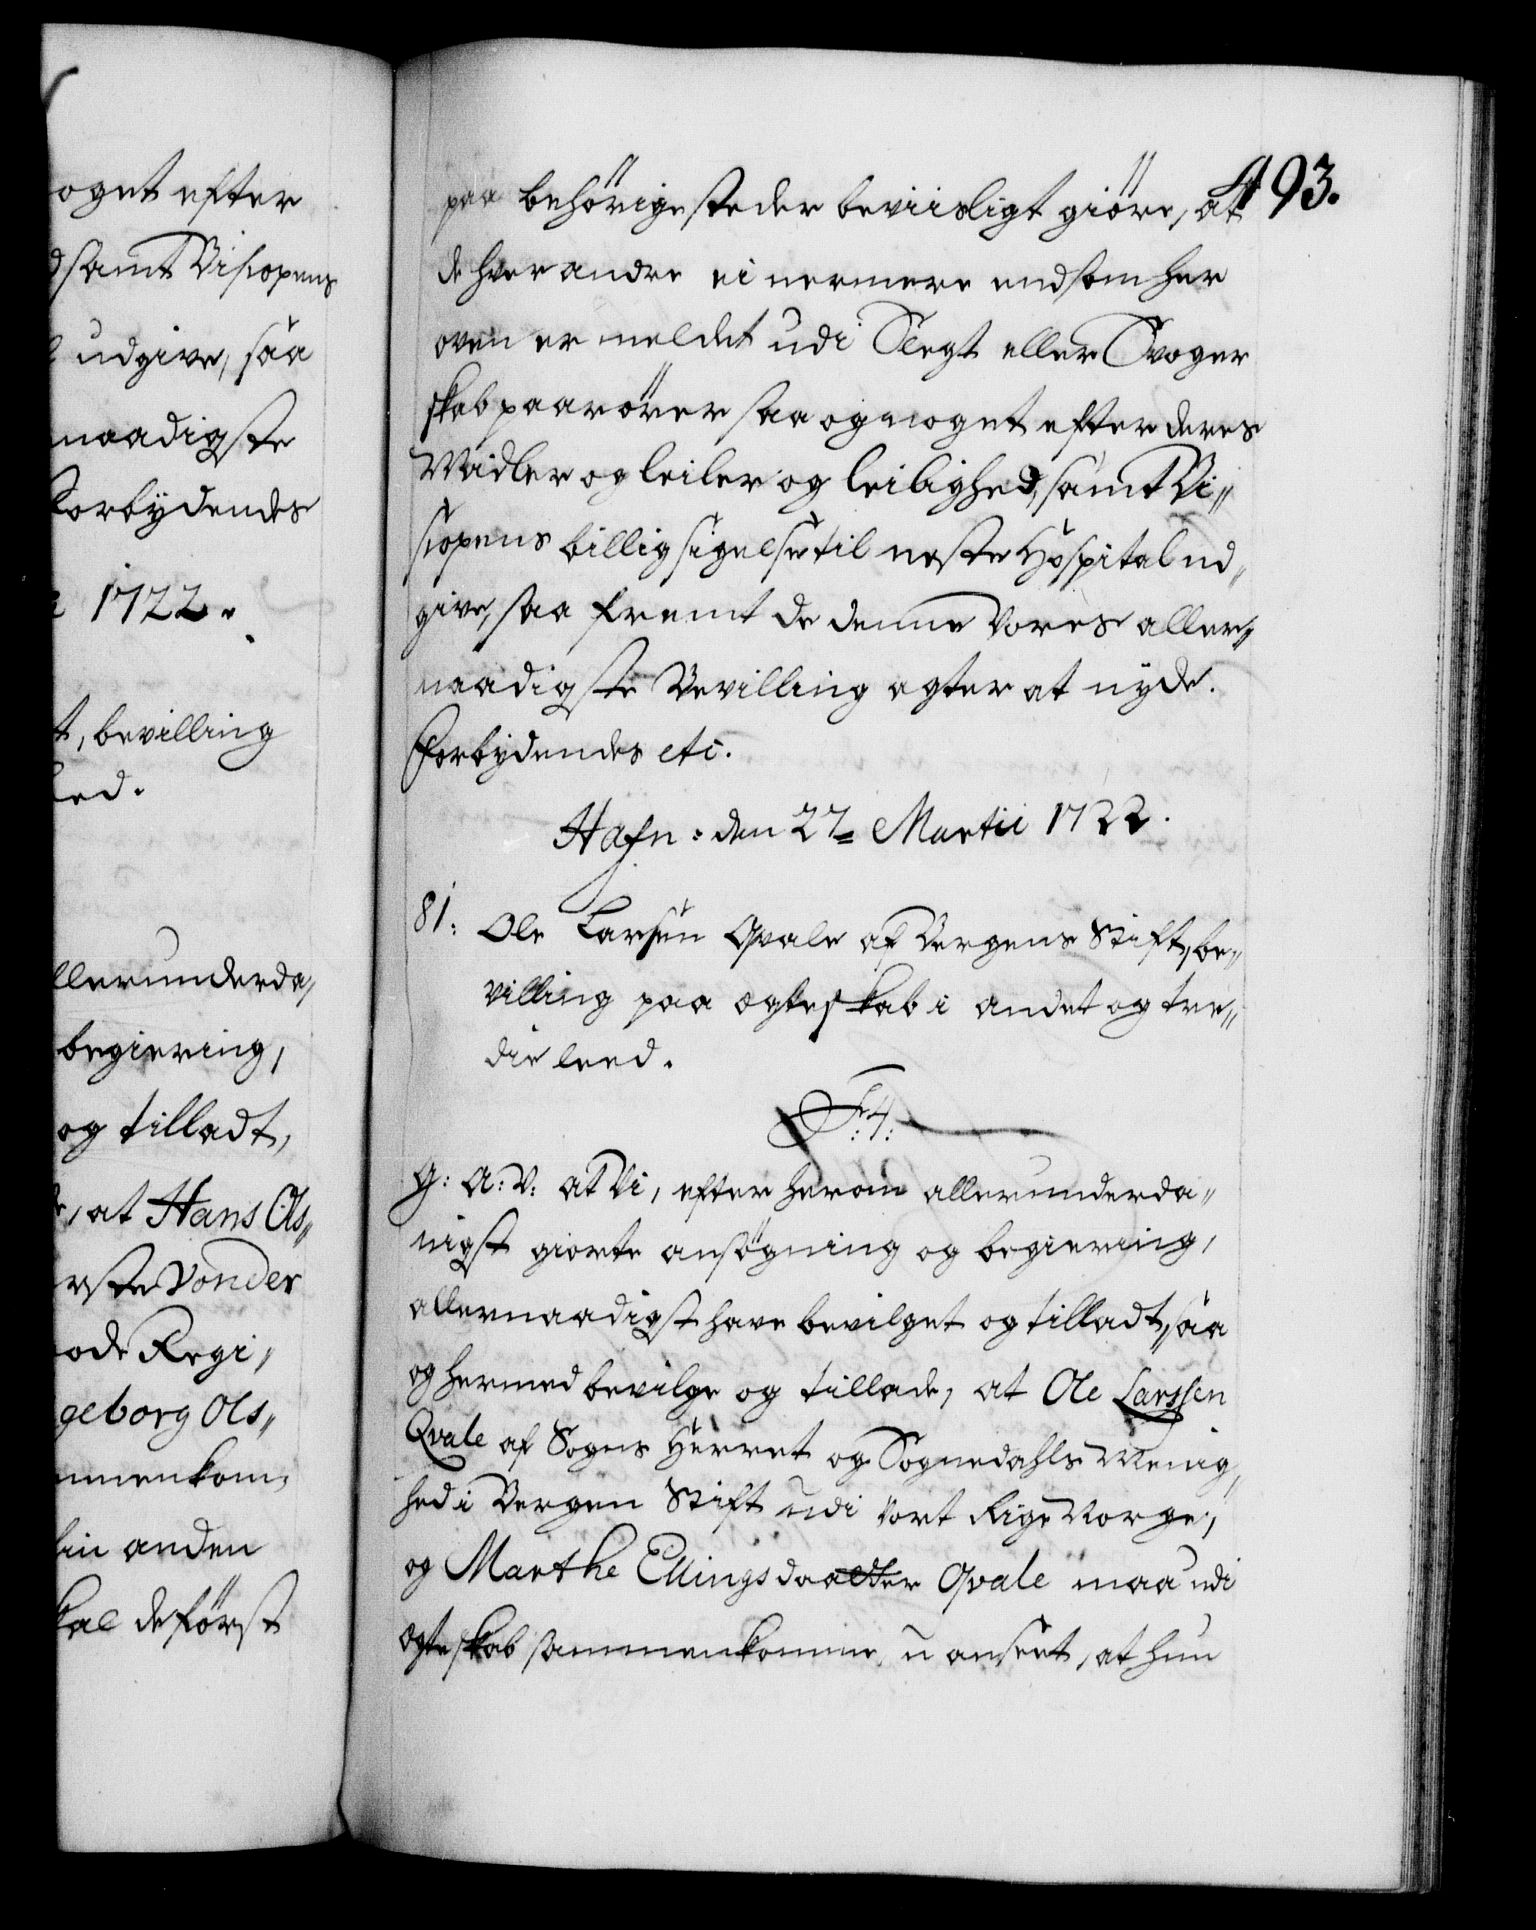 oget efter
dsamt Biscopens
udgive, saa
naadigste
Forbydendes
1722.
t, bevilling
led.
llerunderda,
begiering,
og tilladt,
, at Hans Ols,,
rste Vonder
ode Regi,
geborg Ols,,
mmenkom,
sin anden
skal de först
493.
paa behörige steder beviisligt giöre, at
de hver andre ei nermere end som her
oven er meldet udi Slegt eller Svoger
skab paarörer saa og noget efter deres
Midler og leiler og leilighed, samt Bi,,
scopens billigsigelse til neste Hospital ud,,
give, saa fremt de denne Vores aller,,
naadigste Bevilling agter at nyde.
Forbydendes etc.
Hafn: den 27 Martii 1722.
81: Ole Larsen Qvale af Bergens Stift, be,,
villing paa egteskab i andet og tre,,
die leed.
F:4:
G: A: V: at Vi, efter herom allerunderda,,
nigst giorte ansögning og begiering,
allernaadigst have bevilget og tilladt, saa
og hermed bevilge og tillade, at Ole Larssen
Qvale af Sogns Herret og Sognedahls Menig,
hed i Bergen Stift udi Vort Rige Norge,
og Marthe Ellingsdaatter Qvale maa udi
egteskab sammenkomme, u anseet, at hun